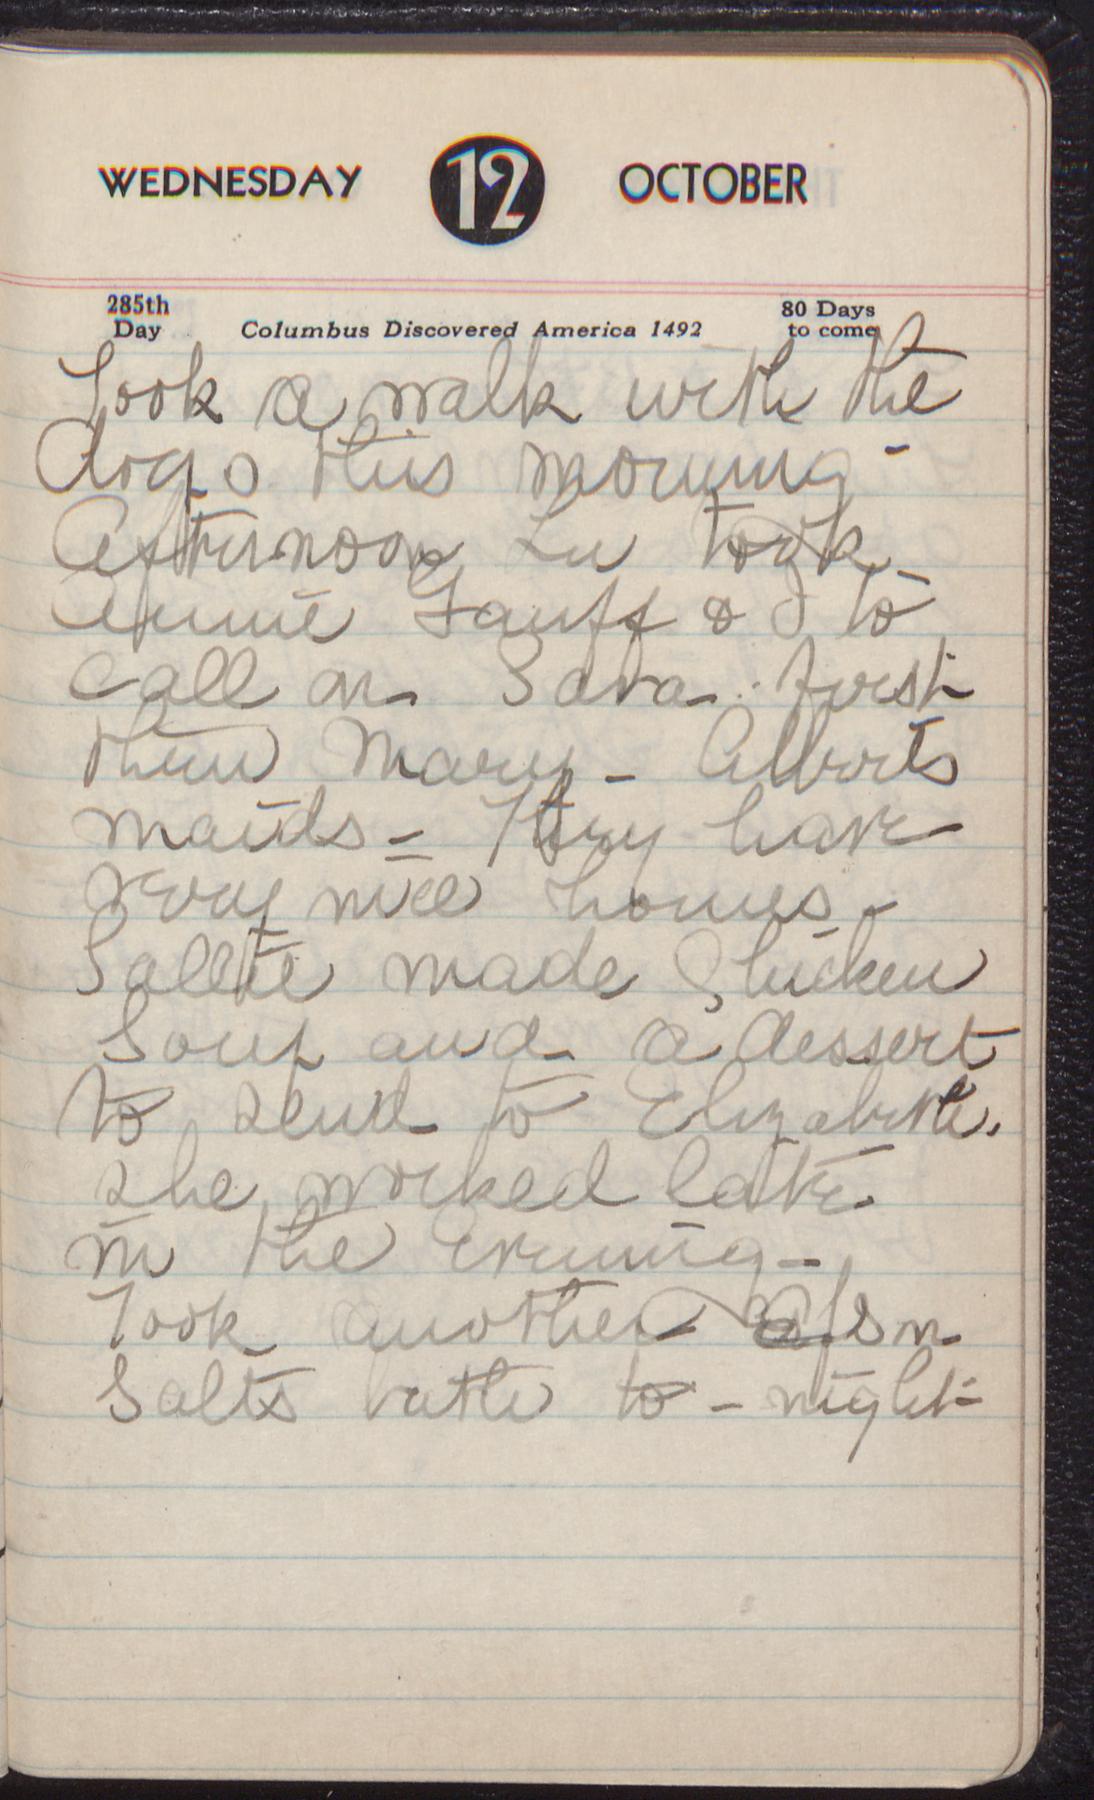 WEDNESDAY 12 OCTOBER
285th Day Columbus Discovered America 1492 80 Days to come
Took a walk with the
dogs this morning -
Afternoon Lu took
Annie Gauff & I to
call on Sara first
then Mary - Alberts
maids - They have
very nice homes -
Sallie made Chicken
Soup and a dessert
to send to Elizabeth.
She worked late
in the evening -
Took another Epsom
Salts bath to-night-